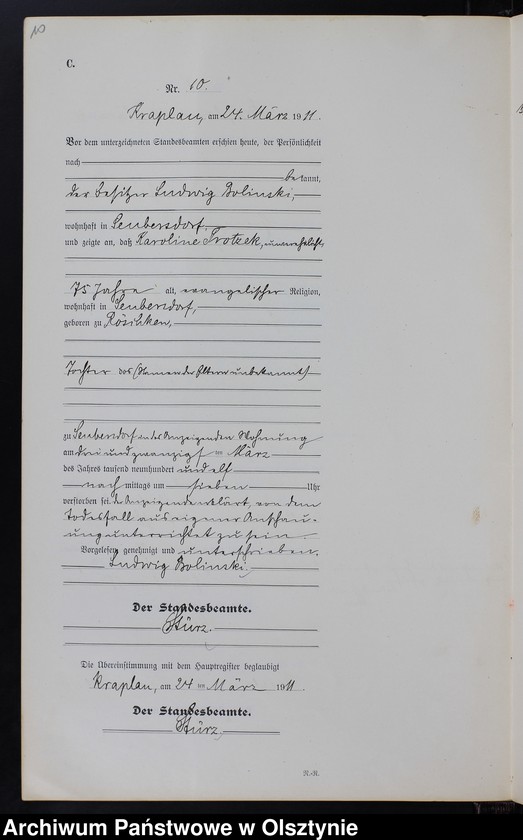 10
C.
Nr. 10.
Kraplau, am 24. März 1911.
Vor dem unterzeichneten Standesbeamten erschien heute, der Persönlichkeit
nach
bekannt,
der Besitzer Ludwig Bolinski,
wohnhaft in Seubersdorf,
und zeigte an, daß Karoline Trotzek, unverehelicht,
75 Jahre alt, evangelischer Religion,
wohnhaft in Seubersdorf,
geboren zu Röschken,
Tochter des (Namen der Eltern unbekannt)
zu Seubersdorf in des Anzeigenden Wohnung
am drei und zwanzigsten März
des Jahres tausend neunhundert und elf
nach mittags um sieben Uhr
verstorben sei. Der Anzeigende erklärt, von dem
Todesfall aus eigener Anschau-
ung unterrichtet zu sein.
Vorgelesen, genehmigt und unterschrieben.
Ludwig Bolinski.
Der Standesbeamte.
Stürz.
Die Übereinstimmung mit dem Hauptregister beglaubigt
Kraplau, am 24 ten März 1911.
Der Standesbeamte.
Stürz.
N.-R.
Archiwum Państwowe w Olsztynie